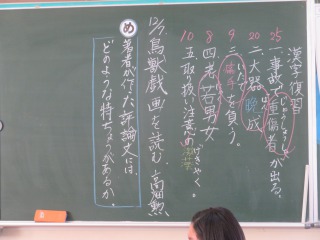 漢字復習
25 一 事故で重傷者が出る。
じゅうしょうしゃ
20 二 大器晩成
9 三 痛手を負う。
いたで
8 四 老若男女
10 五 取り扱い注意の劇薬
げきやく。
12/7 鳥獣戯画を読む 高畑勲
め 筆者が使った評論文には、
どのような特ちょうがあるか。